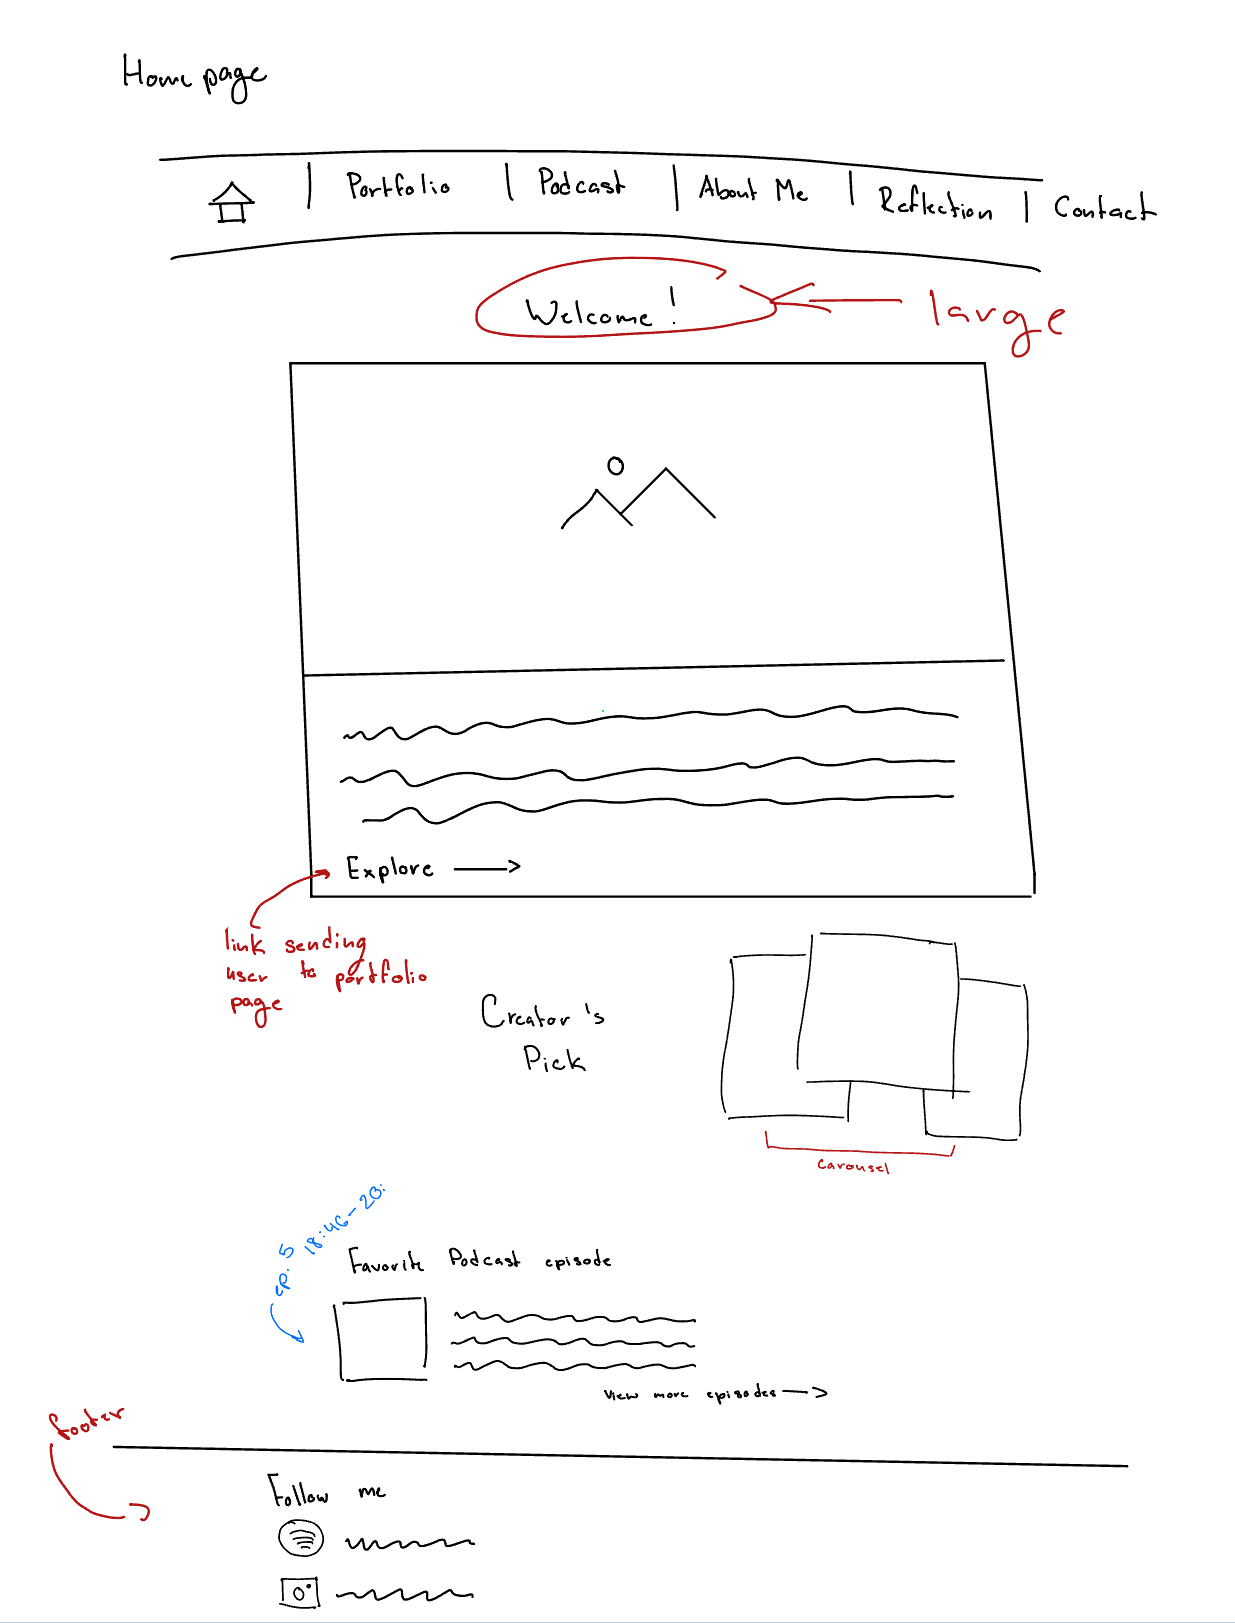 Home page
Portfolio | Podcast | About Me | Reflection | Contact
Welcome!
large
Explore
link sending
user to portfolio
page
Creator's
Pick
Carousel
ep. 5 18:46-20:
Favorite Podcast episode
View more episodes
footer
Follow me